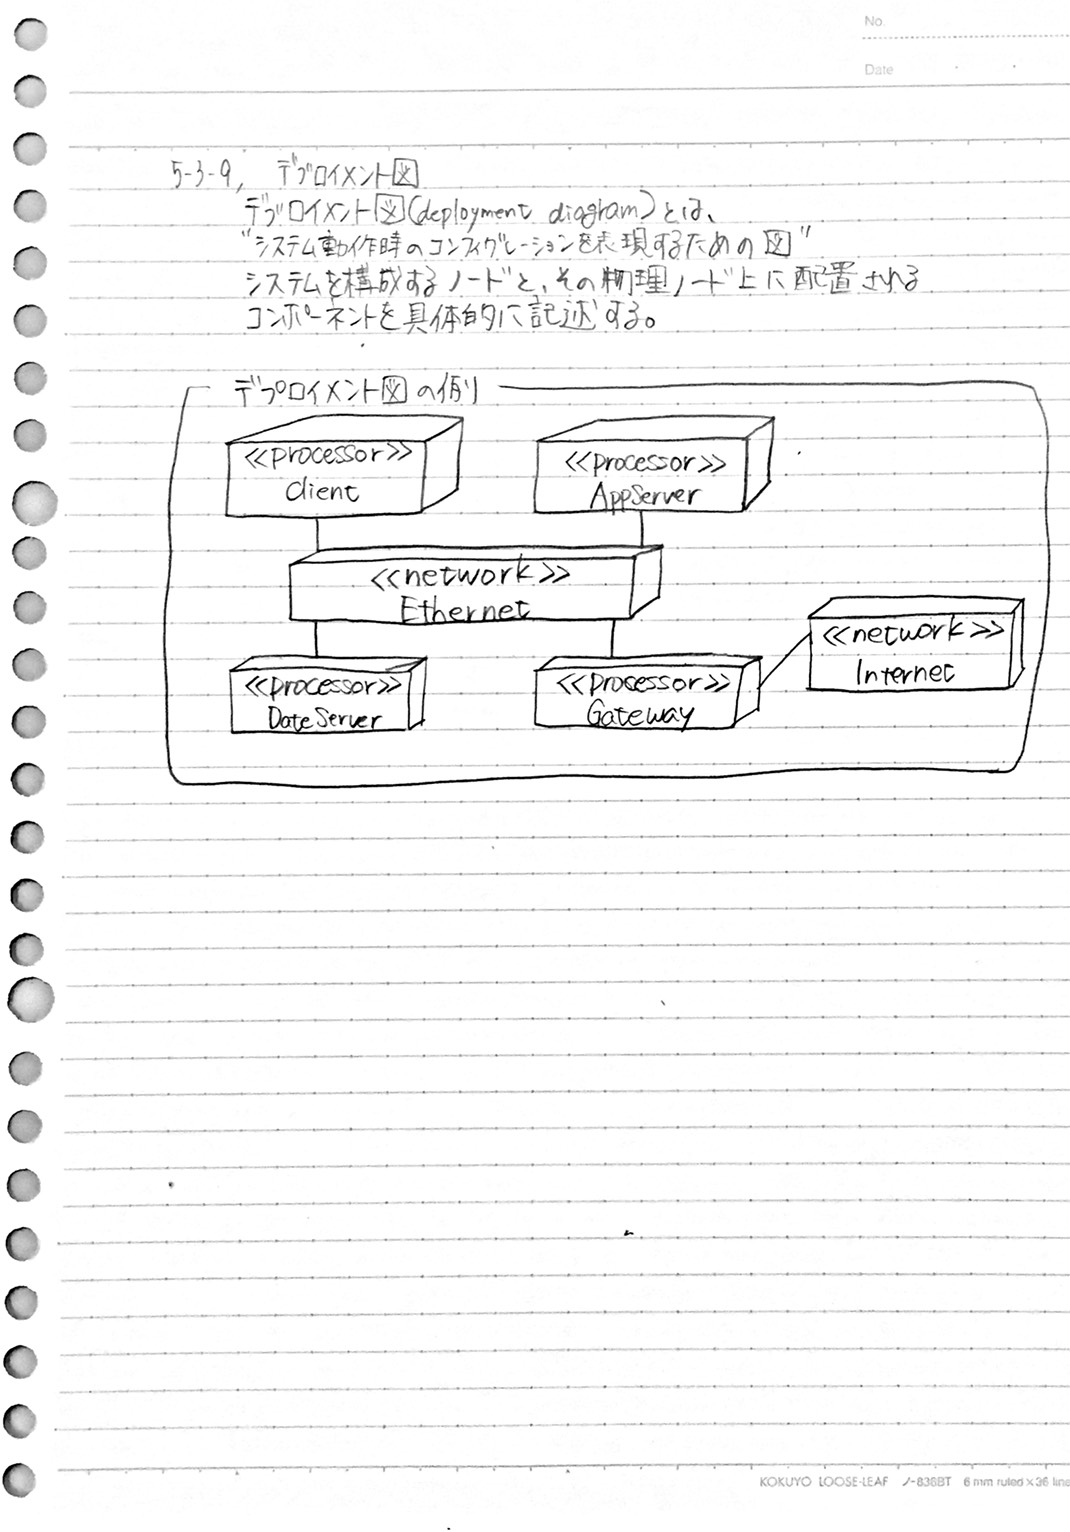 No.
Date
5-3-9, デプロイメント図
デプロイメント図(deployment diagram)とは、
"システム動作時のコンフィグレーションを表現するための図"
システムを構成するノードと、その物理ノード上に配置される
コンポーネントを具体的に記述する。
デプロイメント図の例
<<processor>>
Client
<<processor>>
AppServer
<<network>>
Ethernet
<<network>>
Internet
<<processor>>
DateServer
<<processor>>
Gateway
KOKUYO LOOSE-LEAF ノ-836BT 6 mm ruled×36 line